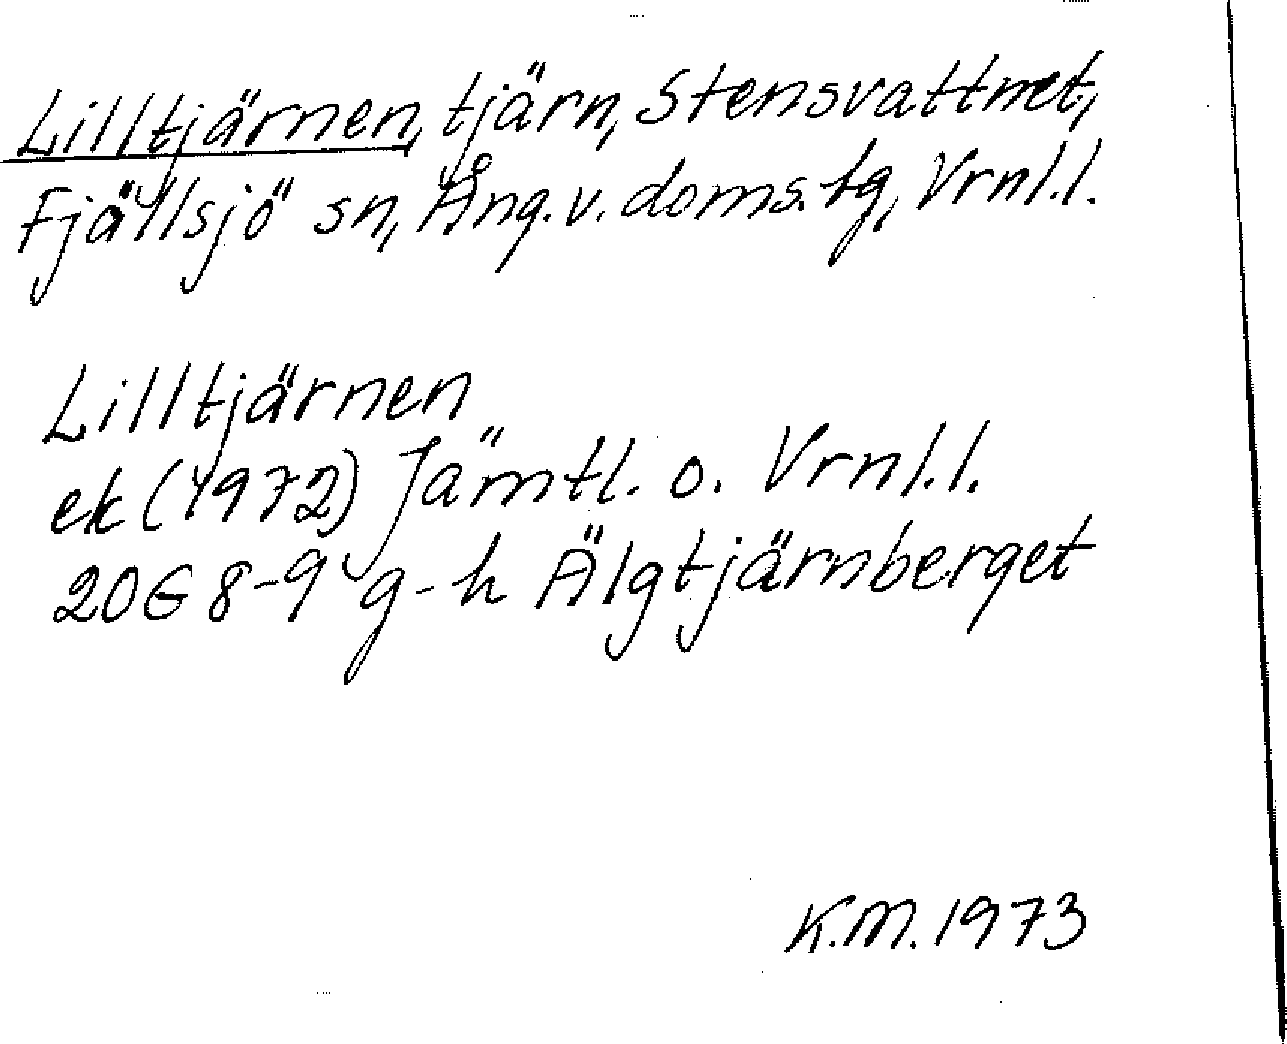 Lilltjärnen, tjärn, Stensvattnet,
Fjällsjö sn, Ång. v. doms. tg, Vrnl.l.
Lilltjärnen
ek (1972) Jämtl. o. Vrnl.l.
20G 8-9 g-h Älgtjärnberget
K.M. 1973